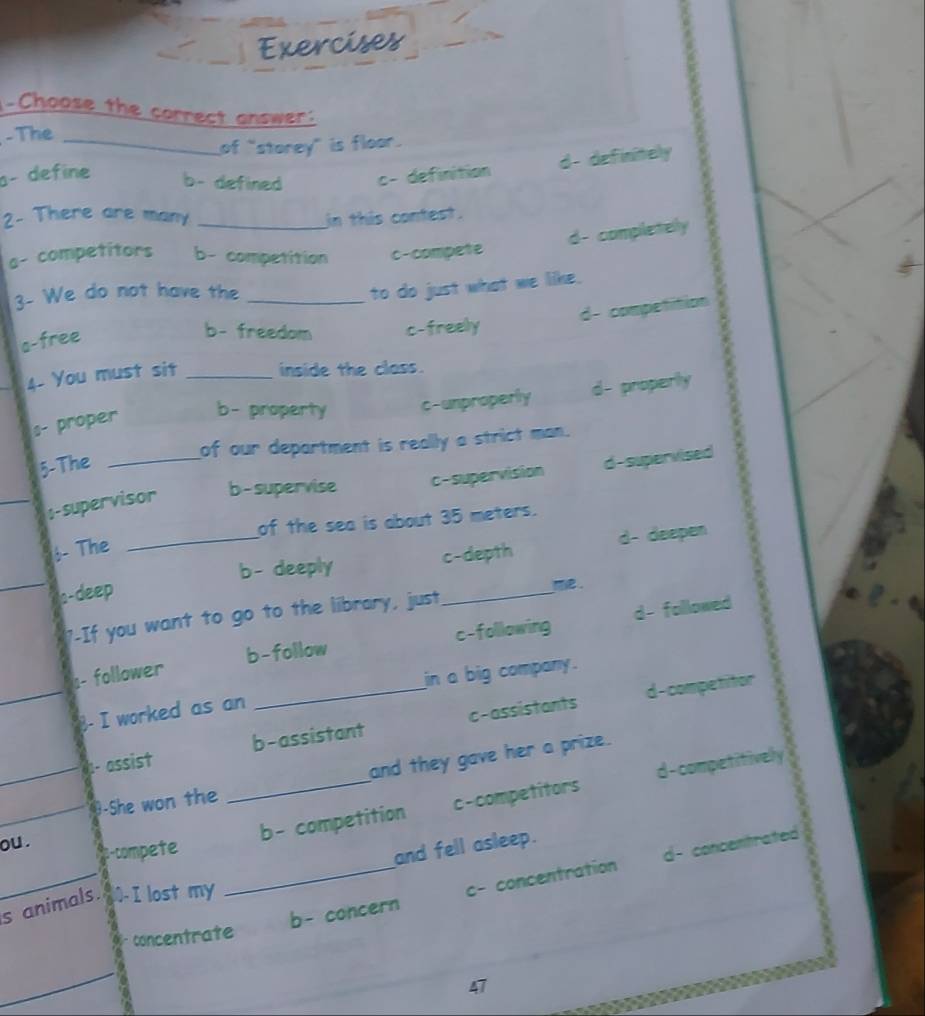 Exercises
-Choose the correct answer:
-The ________of "storey" is floor.
a- define b- defined c- definition d- definitely
2- There are many ________in this contest.
a- competitors b- competition c-compete d- completely
3- We do not have the ________ to do just what we like.
a-free b- freedom c-freely d- competition
4- You must sit ________ inside the class.
a- proper b- property c-unproperly d- properly
5-The ________of our department is really a strict man.
a-supervisor b-supervise c-supervision d-supervised
- The ________of the sea is about 35 meters.
a-deep b- deeply c-depth d- deepen
7-If you want to go to the library, just________me.
- follower b-follow c-following d- followed
- I worked as an ________in a big company.
- assist b-assistant c-assistants d-competitor
9-She won the ________and they gave her a prize.
-compete b- competition c-competitors d-competitively
ou.
0- I lost my ________and fell asleep.
s animals.
- concentrate b- concern c- concentration d- concentrated
47